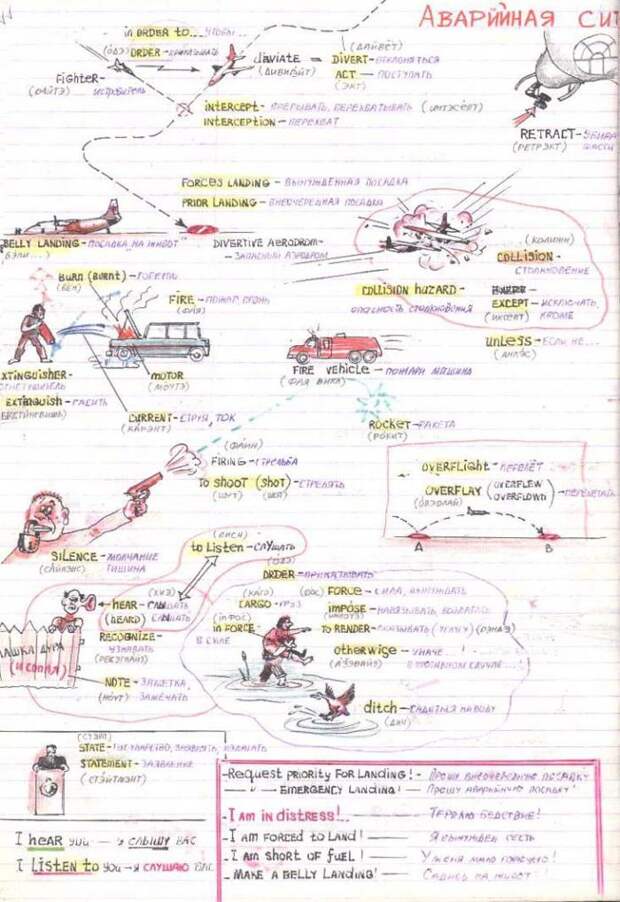 АВАРИЙНАЯ СИТ
in ORDER to... ЧТОБЫ...
(ОДЭ) ORDER - ПРИКАЗЫВАТЬ
(ДАЙВЁТ)
DIVERT - ОТКЛОНЯТЬСЯ
ACT - ПОСТУПАТЬ
(ЭКТ)
FIGHTER -
(ФАЙТЭ) - ИСТРЕБИТЕЛЬ
INTERCEPT - ПРЕРЫВАТЬ, ПЕРЕХВАТЫВАТЬ (ИНТЭСЭПТ)
INTERCEPTION - ПЕРЕХВАТ
RETRACT - УБИРА
(РЕТРЭКТ) ШАССИ
FORCES LANDING - ВЫНУЖДЕННАЯ ПОСАДКА
PRIOR LANDING - ВНЕОЧЕРЕДНАЯ ПОСАДКА
BELLY LANDING - ПОСАДКА "НА ЖИВОТ"
(БЭЛИ...)
DIVERTIVE AERODROM -
- ЗАПАСНЫЙ АЭРОДРОМ
COLLISION -
СТОЛКНОВЕНИЕ
COLLISION HAZARD -
ОПАСНОСТЬ СТОЛКНОВЕНИЯ
EXCEPT - ИСКЛЮЧАТЬ,
(ИКСЕПТ) КРОМЕ
UNLESS - ЕСЛИ НЕ...
(АНЛЭС)
BURN (BURNT) - ГОРЕТЬ
(БЕН)
FIRE - ПОЖАР, ОГОНЬ
(ФАЙЯ)
XTINGUISHER -
ГНЕТУШИТЕЛЬ
EXTINGUISH - ГАСИТЬ
MOTOR
(МОУТЭ)
CURRENT - СТРУЯ, ТОК
(КАРЭНТ)
FIRE VEHICLE - ПОЖАРН МАШИНА
(ФАЯ ВИКЛ)
ROCKET - РАКЕТА
(РОКИТ)
FIRING - СТРЕЛЬБА
TO SHOOT (SHOT) - СТРЕЛЯТЬ
(ШУТ) (ШОТ)
OVERFLIGHT - ПЕРЕЛЁТ
OVERFLAY (OVERFLEW
OVERFLOWN) - ПЕРЕЛЕТАТЬ
A B
SILENCE - МОЛЧАНИЕ
(САЙЛЭНС) ТИШИНА
to Listen - СЛУШАТЬ
(ОДЭ)
ORDER - ПРИКАЗЫВАТЬ
(ХИЭ)
HEAR - СЛЫШАТЬ
(HEARD) СЛЫШАТЬ
RECOGNIZE -
УЗНАВАТЬ
NOTE - ЗАМЕТКА,
(НОУТ) ЗАМЕЧАТЬ
(КАГО)
CARGO - ГРУЗ
(ФОС) FORCE - СИЛА, ВЫНУЖДАТЬ
impose - НАВЯЗЫВАТЬ, ВОЗЛАГАТЬ
(ИН ФОС)
in FORCE
В СИЛЕ
to RENDER - ОКАЗЫВАТЬ (РЭНДЭ)
otherwige - ИНАЧЕ...!
В ПРОТИВНОМ СЛУЧАЕ...!
ditch - САДИТЬСЯ НА ВОДУ
(ДИЧ)
(СТЭЙТ)
STATE - ГОСУДАРСТВО, ЗАЯВЛЯТЬ, ИЗЛАГАТЬ
STATEMENT - ЗАЯВЛЕНИЕ
(СТЭЙТМЭНТ)
I hear you - я СЛЫШУ ВАС
I Listen to you - я СЛУШАЮ ВАС
- Request PRIORITY FOR LANDING! - ПРОШУ ВНЕОЧЕРЕДНУЮ ПОСАДКУ
- " - EMERGENCY LANDING! - ПРОШУ АВАРИЙНУЮ ПОСАДКУ!
- I AM IN DISTRESS!.. ТЕРПЛЮ БЕДСТВИЕ!
- I AM FORCED TO LAND! - Я ВЫНУЖДЕН СЕСТЬ
- I AM SHORT OF FUEL! - У МЕНЯ МАЛО ГОРЮЧЕГО!
- MAKE A BELLY LANDING! - САЖУСЬ НА ЖИВОТ!